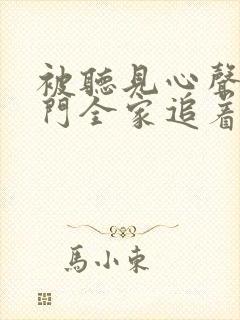 被聽見心聲
門全家追着
馬小東